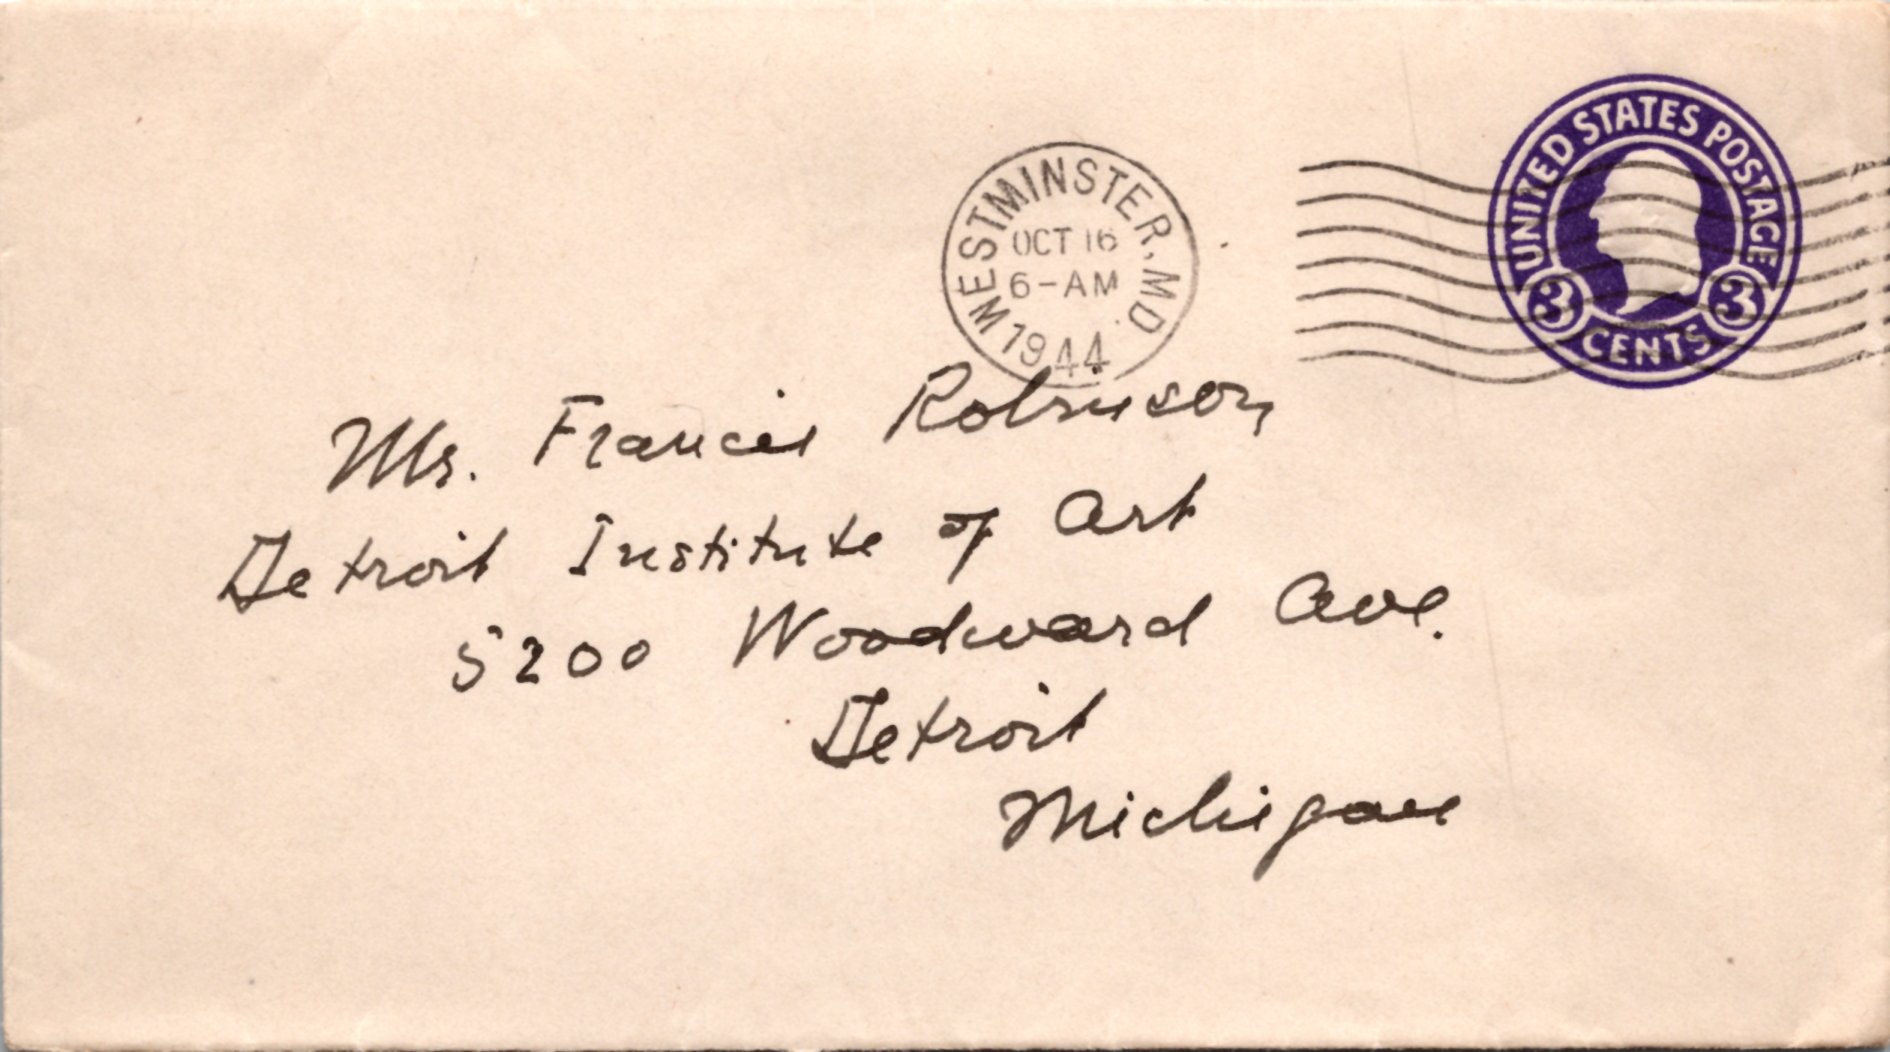 UNITED STATES POSTAGE
3 CENTS 3
WESTMINSTER, MD.
OCT 16
6-AM
1944
Mr. Francis Robinson
Detroit Institute of Art
5200 Woodward Ave.
Detroit
Michigan